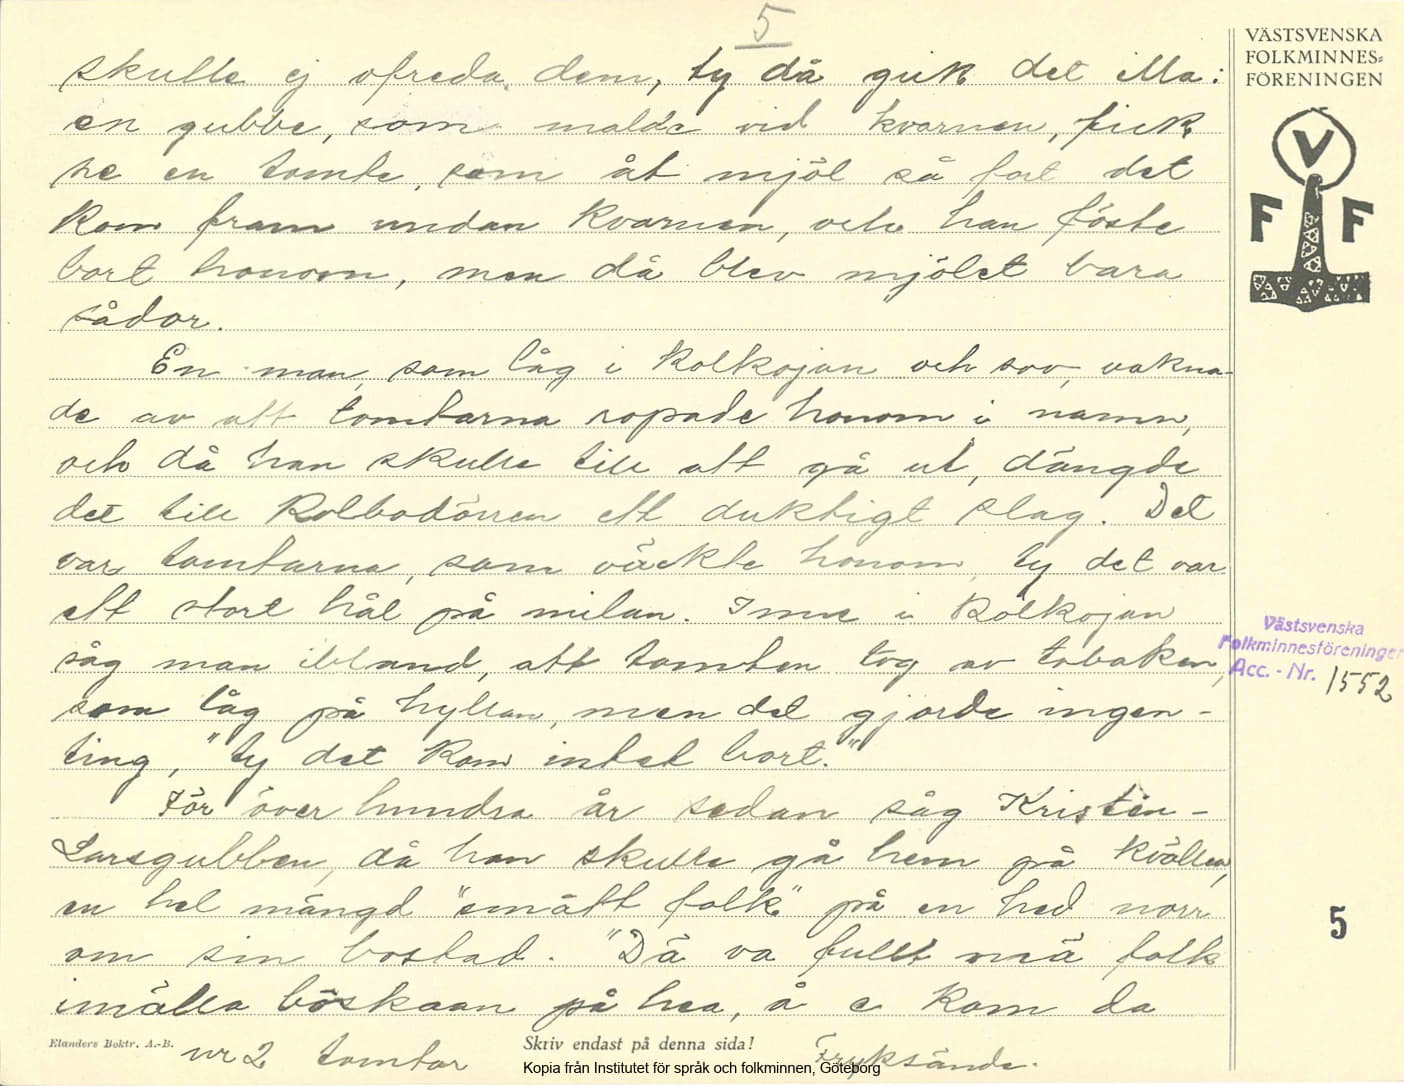 5
VÄSTSVENSKA
FOLKMINNES-
FÖRENINGEN
skulle ej ofreda dem, ty då gick det illa:
en gubbe, som malde vid kvarnen, fick
se en tomte, som åt mjöl så fort det
kom fram undan kvarnen, och han föste
bort honom, men då blev mjölet bara
sådor.
En man, som låg i kolkojan och sov, vakna-
de av att tomtarna ropade honom i namn,
och då han skulle till att gå ut, dängde
det till kolbodörren ett duktigt slag. Det
var tomtarna, som väckte honom, ty det var
ett stort hål på milan. Inne i kolkojan
såg man ibland, att tomten tog av tobaken,
som låg på hyllan, men det gjorde ingen-
ting, "ty det kom intet bort."
För över hundra år sedan såg Kristen-
Larsgubben, då han skulle gå hem på kvällen,
en hel mängd "smått folk" på en hed norr
om sin bostad. "Dä va fullt mä folk
imälla böskaan på hea, å e kom da
V
F F
Västsvenska
Folkminnesföreningen
Acc. - Nr. 1552
5
Elanders Boktr. A.-B.
Skriv endast på denna sida!
nr 2 tomtar
Fryksände.
Kopia från Institutet för språk och folkminnen, Göteborg